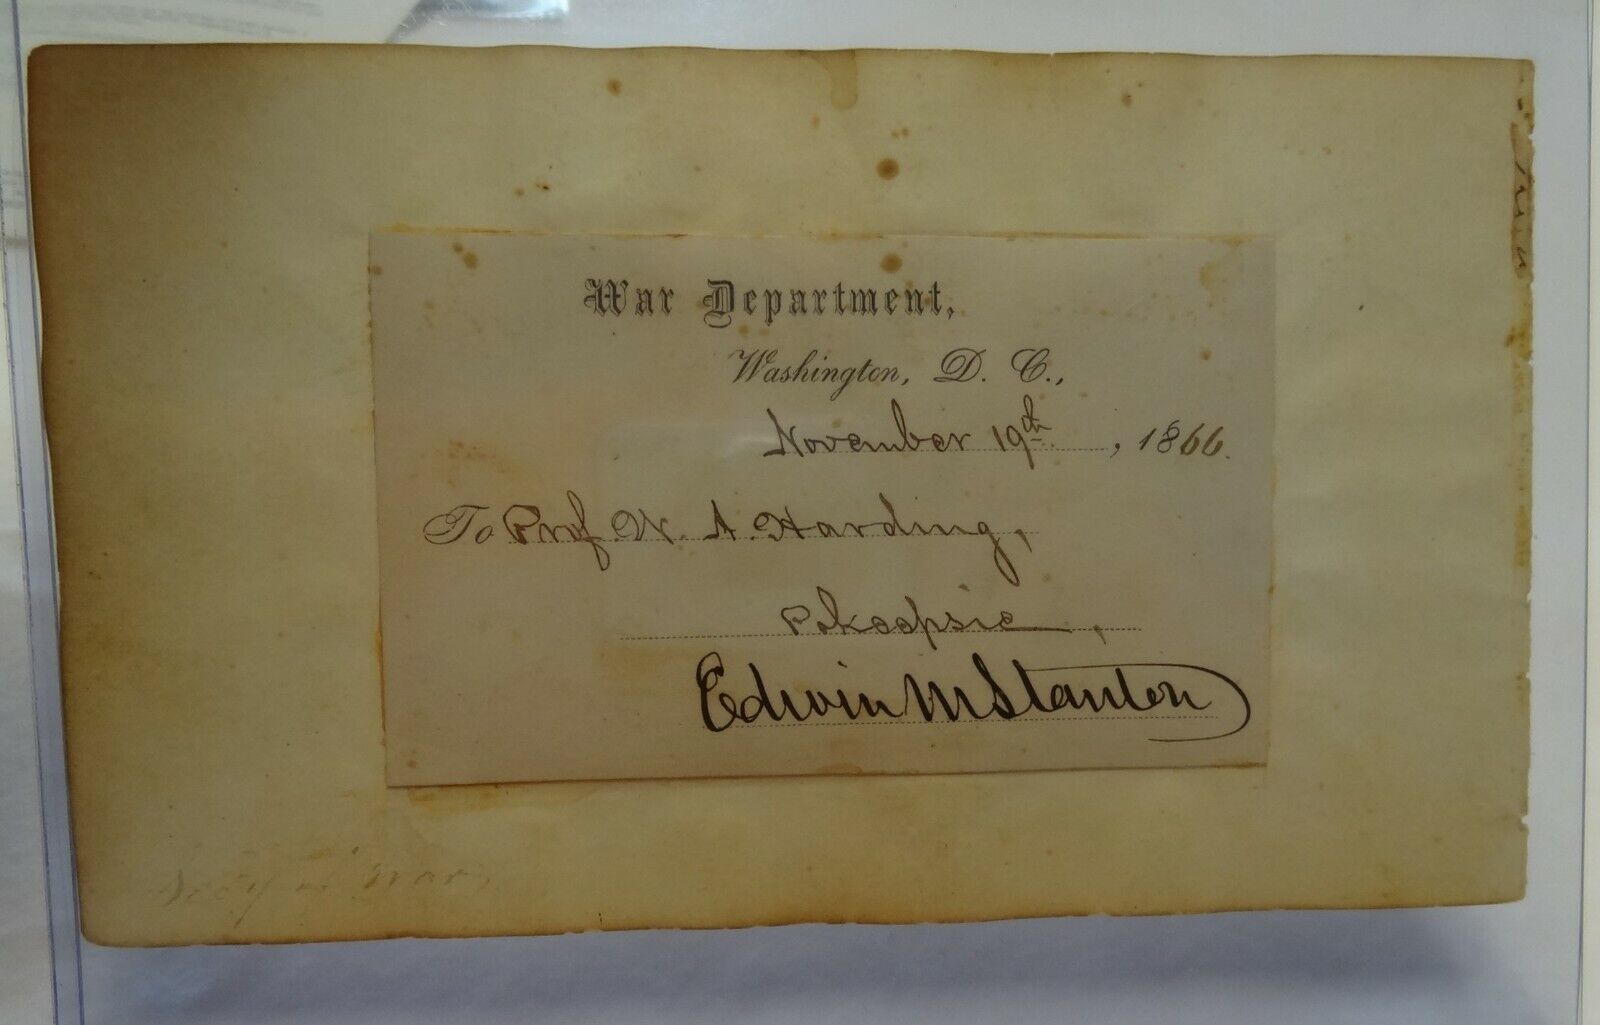 War Department,
Washington, D. C.,
November 19th, 1866.
To Prof. W. A. Harding,
Pokeepsie,
Edwin M Stanton
Secy of War